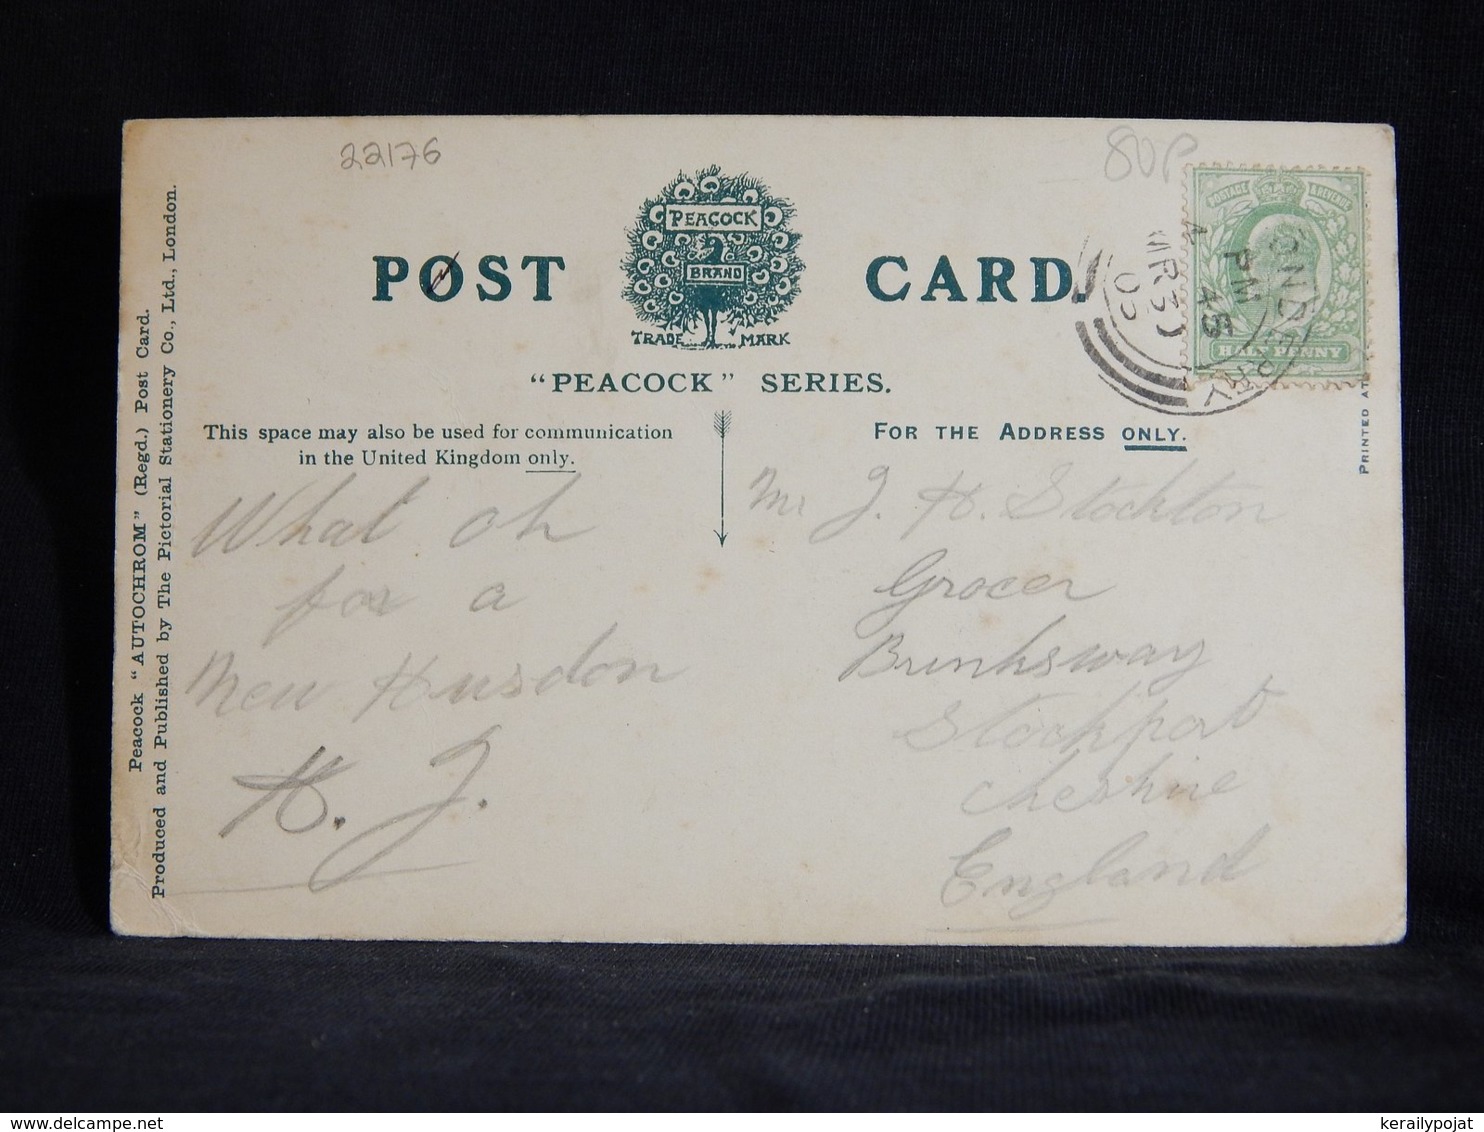 22176
80P
PEACOCK
BRAND
TRADE MARK
POST CARD.
"PEACOCK" SERIES.
POSTAGE REVENUE
HALF PENNY
4 45
PM
MR 31
This space may also be used for communication
in the United Kingdom only.
FOR THE ADDRESS ONLY.
PRINTED AT
Peacock "AUTOCHROM" (Regd.) Post Card.
Produced and Published by The Pictorial Stationery Co., Ltd., London.
What oh
for a
New Husdon
H. J.
Mr J. H. Stockton
Grocer
Brinksway
Stockport
Cheshire
England
kerailypojat